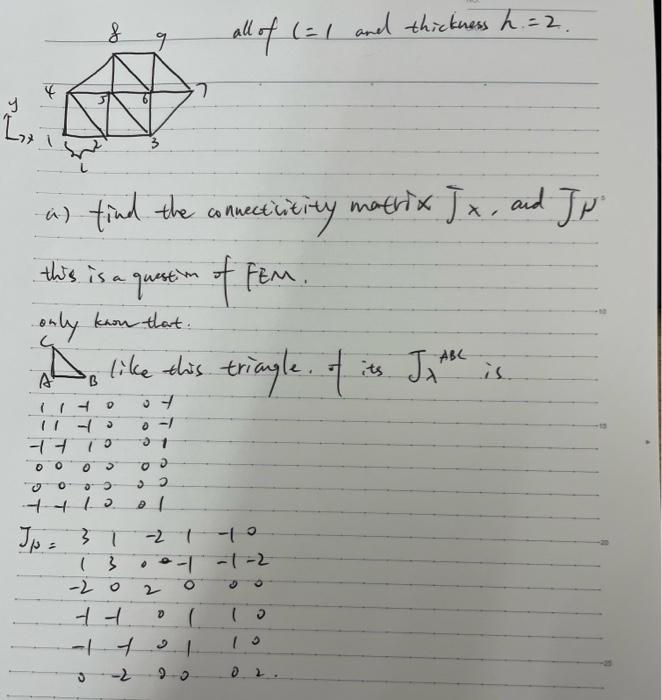 8 9 all of l=1 and thickness h=2.
4 5 6 7
y
x 1 2 3
L
a) find the connecticitity matrix J̄x, and Jμ
this is a question of FEM.
only know that.
C
A B like this triangle. of its Jλ^ABC is.
1 1 -1 0 0 -1
1 1 -1 0 0 -1
-1 -1 1 0 0 1
0 0 0 0 0 0
0 0 0 0 0 0
-1 -1 1 0 0 1
Jμ = 3 1 -2 1 -1 0
1 3 0 -1 -1 -2
-2 0 2 0 0 0
-1 -1 0 1 1 0
-1 -1 0 1 1 0
0 -2 0 0 0 2.